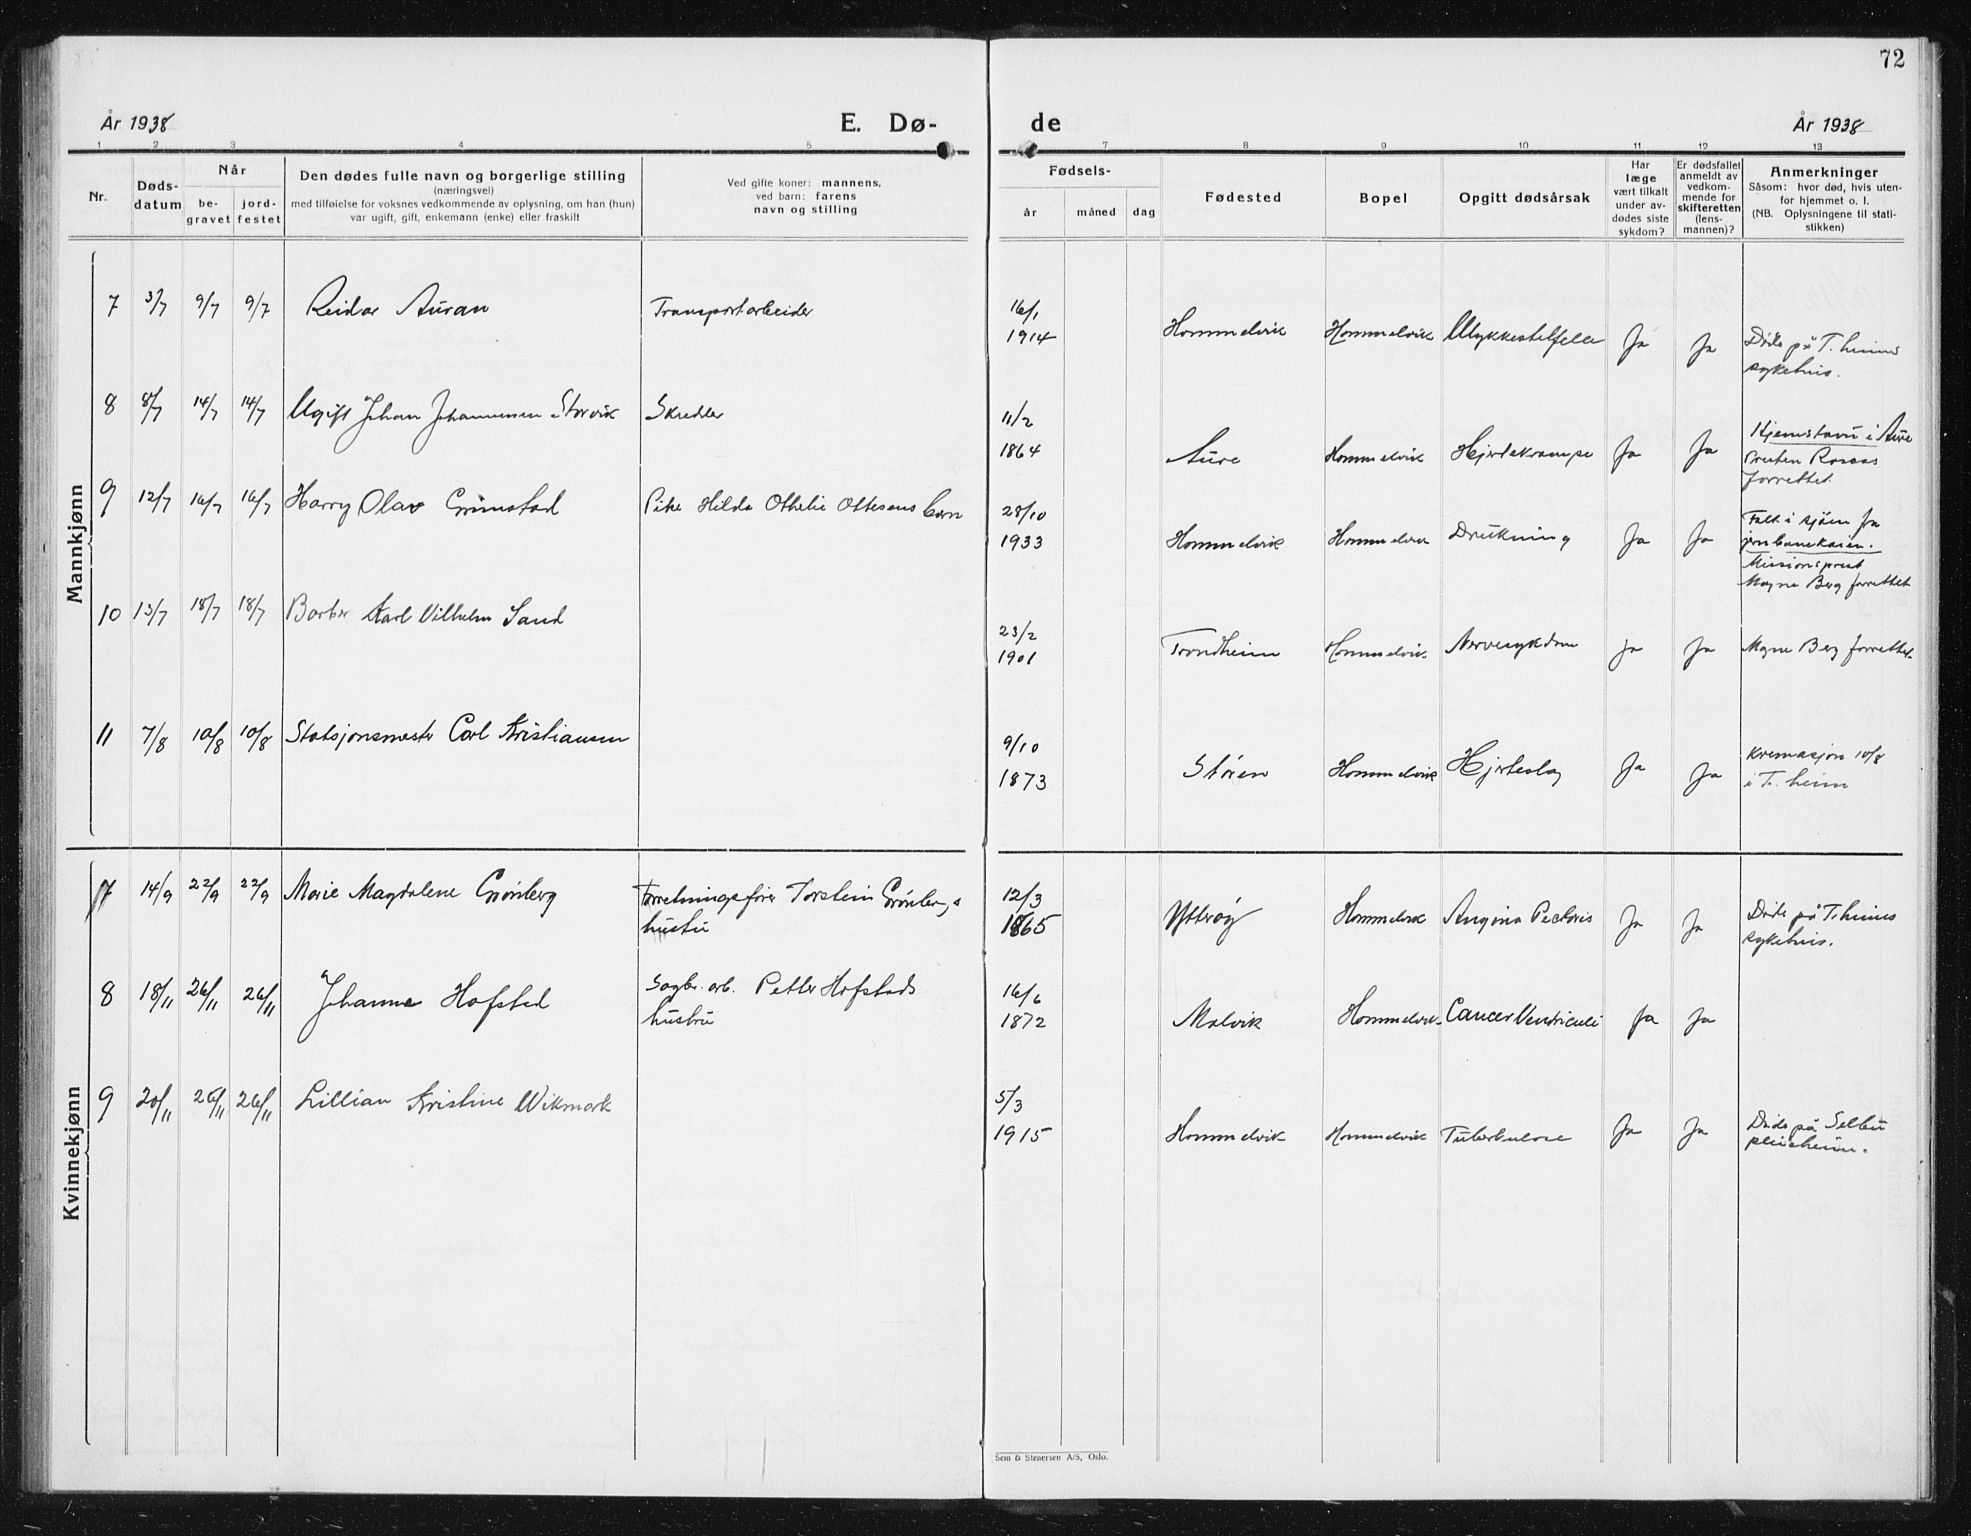 72
År 1938
E. Dø-
de
År 1938
1 2 3 4 5
7 8 9 10 11 12 13
Nr.
Døds-
datum
Når
be-
gravet
jord-
festet
Den dødes fulle navn og borgerlige stilling
(næringsvei)
med tilføielse for voksnes vedkommende av oplysning, om han (hun)
var ugift, gift, enkemann (enke) eller fraskilt
Ved gifte koner: mannens,
ved barn: farens
navn og stilling
Fødsels-
år måned dag
Fødested
Bopel
Opgitt dødsårsak
Har
læge
vært tilkalt
under av-
dødes siste
sykdom?
Er dødsfallet
anmeldt av
vedkom-
mende for
skifteretten
(lens-
mannen)?
Anmerkninger
Såsom: hvor død, hvis uten-
for hjemmet o. l.
(NB. Oplysningene til stati-
stikken)
Mankjønn
7 3/7 9/7 9/7 Reidar Auran Transportarbeider
16/1
1914 Hommelvik Hommelvik Ulykkestilfelle Ja Ja
Døde på T.heims
sykehus.
8 8/7 14/7 14/7 Ugift Johan Johannessen Storvik Skredder
11/2
1864 Aure Hommelvik Hjertekrampe Ja Ja
Hjemstavn i Aure
Presten
forrettet.
9 12/7 16/7 16/7 Harry Olav Grimstad Pike Hilda Othelie Ottesens barn
28/10
1933 Hommelvik Hommelvik Drukning Ja Ja
Falt i sjøen fra
jernbanekaien.
Missionsprest
Magne Berg forrettet
10 13/7 18/7 18/7 Barber Karl Vilhelm Sand
23/2
1901 Trondheim Hommelvik Nervesykdom Ja Ja Magne Berg forrettet.
11 7/8 10/8 10/8 Stasjonsmester Carl Kristiansen
9/10
1873 Støren Hommelvik Hjerteslag Ja Ja
Kremasjon 10/8
i T.heim
Kvinnekjønn
7 14/9 22/9 22/9 Marie Magdalene Grønberg Forretningsfører Torstein Grønbergs
hustru
12/3
1865 Ytterøy Hommelvik Angina Pectoris Ja Ja
Døde på T.heims
sykehus.
8 18/11 26/11 26/11 Johanna Hofstad Sagbr. arb. Petter Hofstads
hustru
16/6
1872 Malvik Hommelvik Cancer Ventriculi Ja Ja
9 20/11 26/11 26/11 Lillian Kristine Wikmark
5/3
1915 Hommelvik Hommelvik Tuberkulose Ja Ja
Døde på Selbu
pleieheim.
Sem & Stenersen A/S, Oslo.